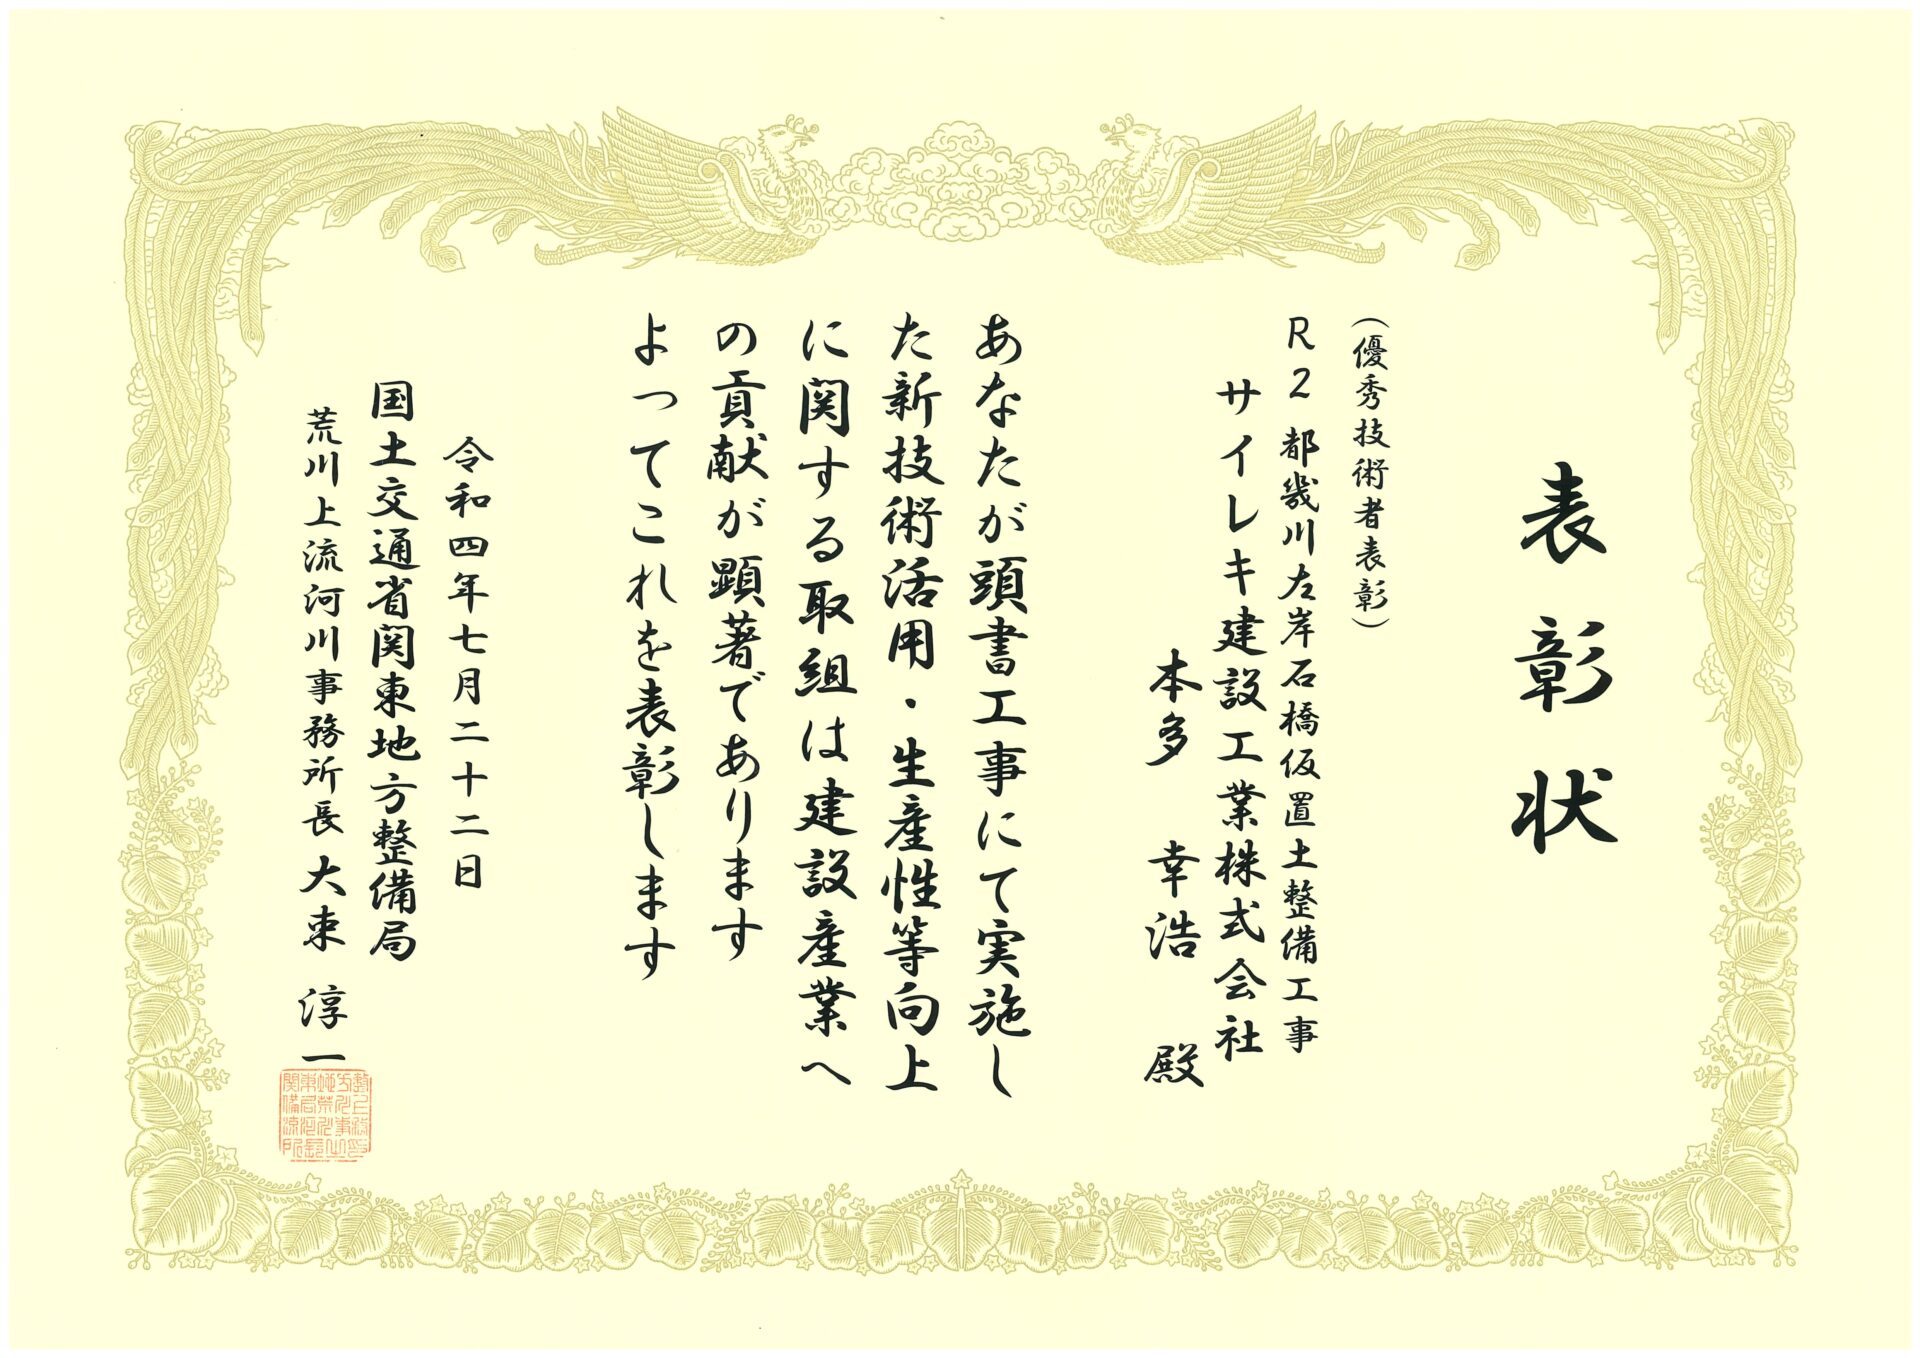 表彰状
（優秀技術者表彰）
R2都幾川左岸石橋仮置土整備工事
サイレキ建設工業株式会社
本多 幸浩 殿
あなたが頭書工事にて実施し
た新技術活用・生産性等向上
に関する取組は建設産業へ
の貢献が顕著であります
よってこれを表彰します
令和四年七月二十二日
国土交通省関東地方整備局
荒川上流河川事務所長 大束 淳一